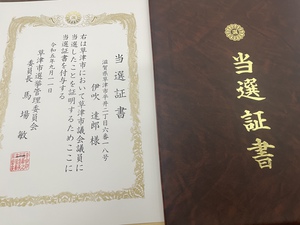 当選証書
滋賀県草津市平井二丁目六番一八号
伊吹達郎様
右は草津市において草津市議会議員に
当選したことを証明するためここに
当選証書を付与する
令和五年九月一一日
草津市選挙管理委員会
委員長 馬場敏
当選証書